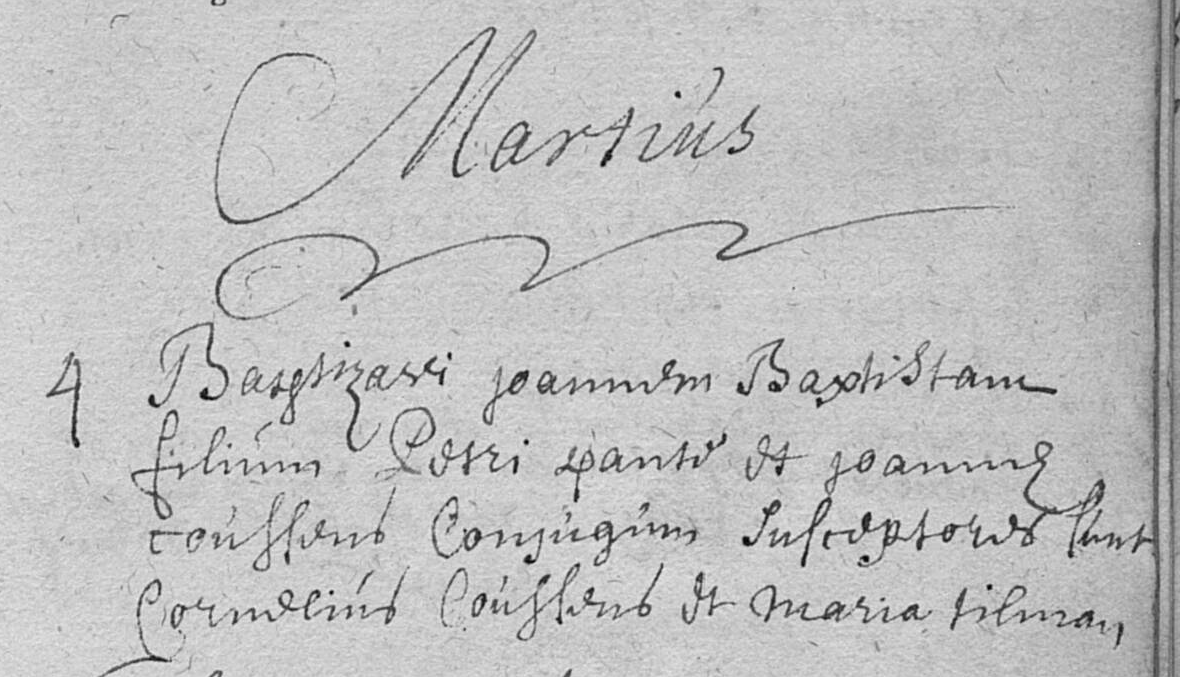 Martiús
4 Baptizavi joannem Baptistam
filiúm Petri pante et joannæ
coússens Conjugúm Susceptores sunt
Corneliús Coússens et maria tilman